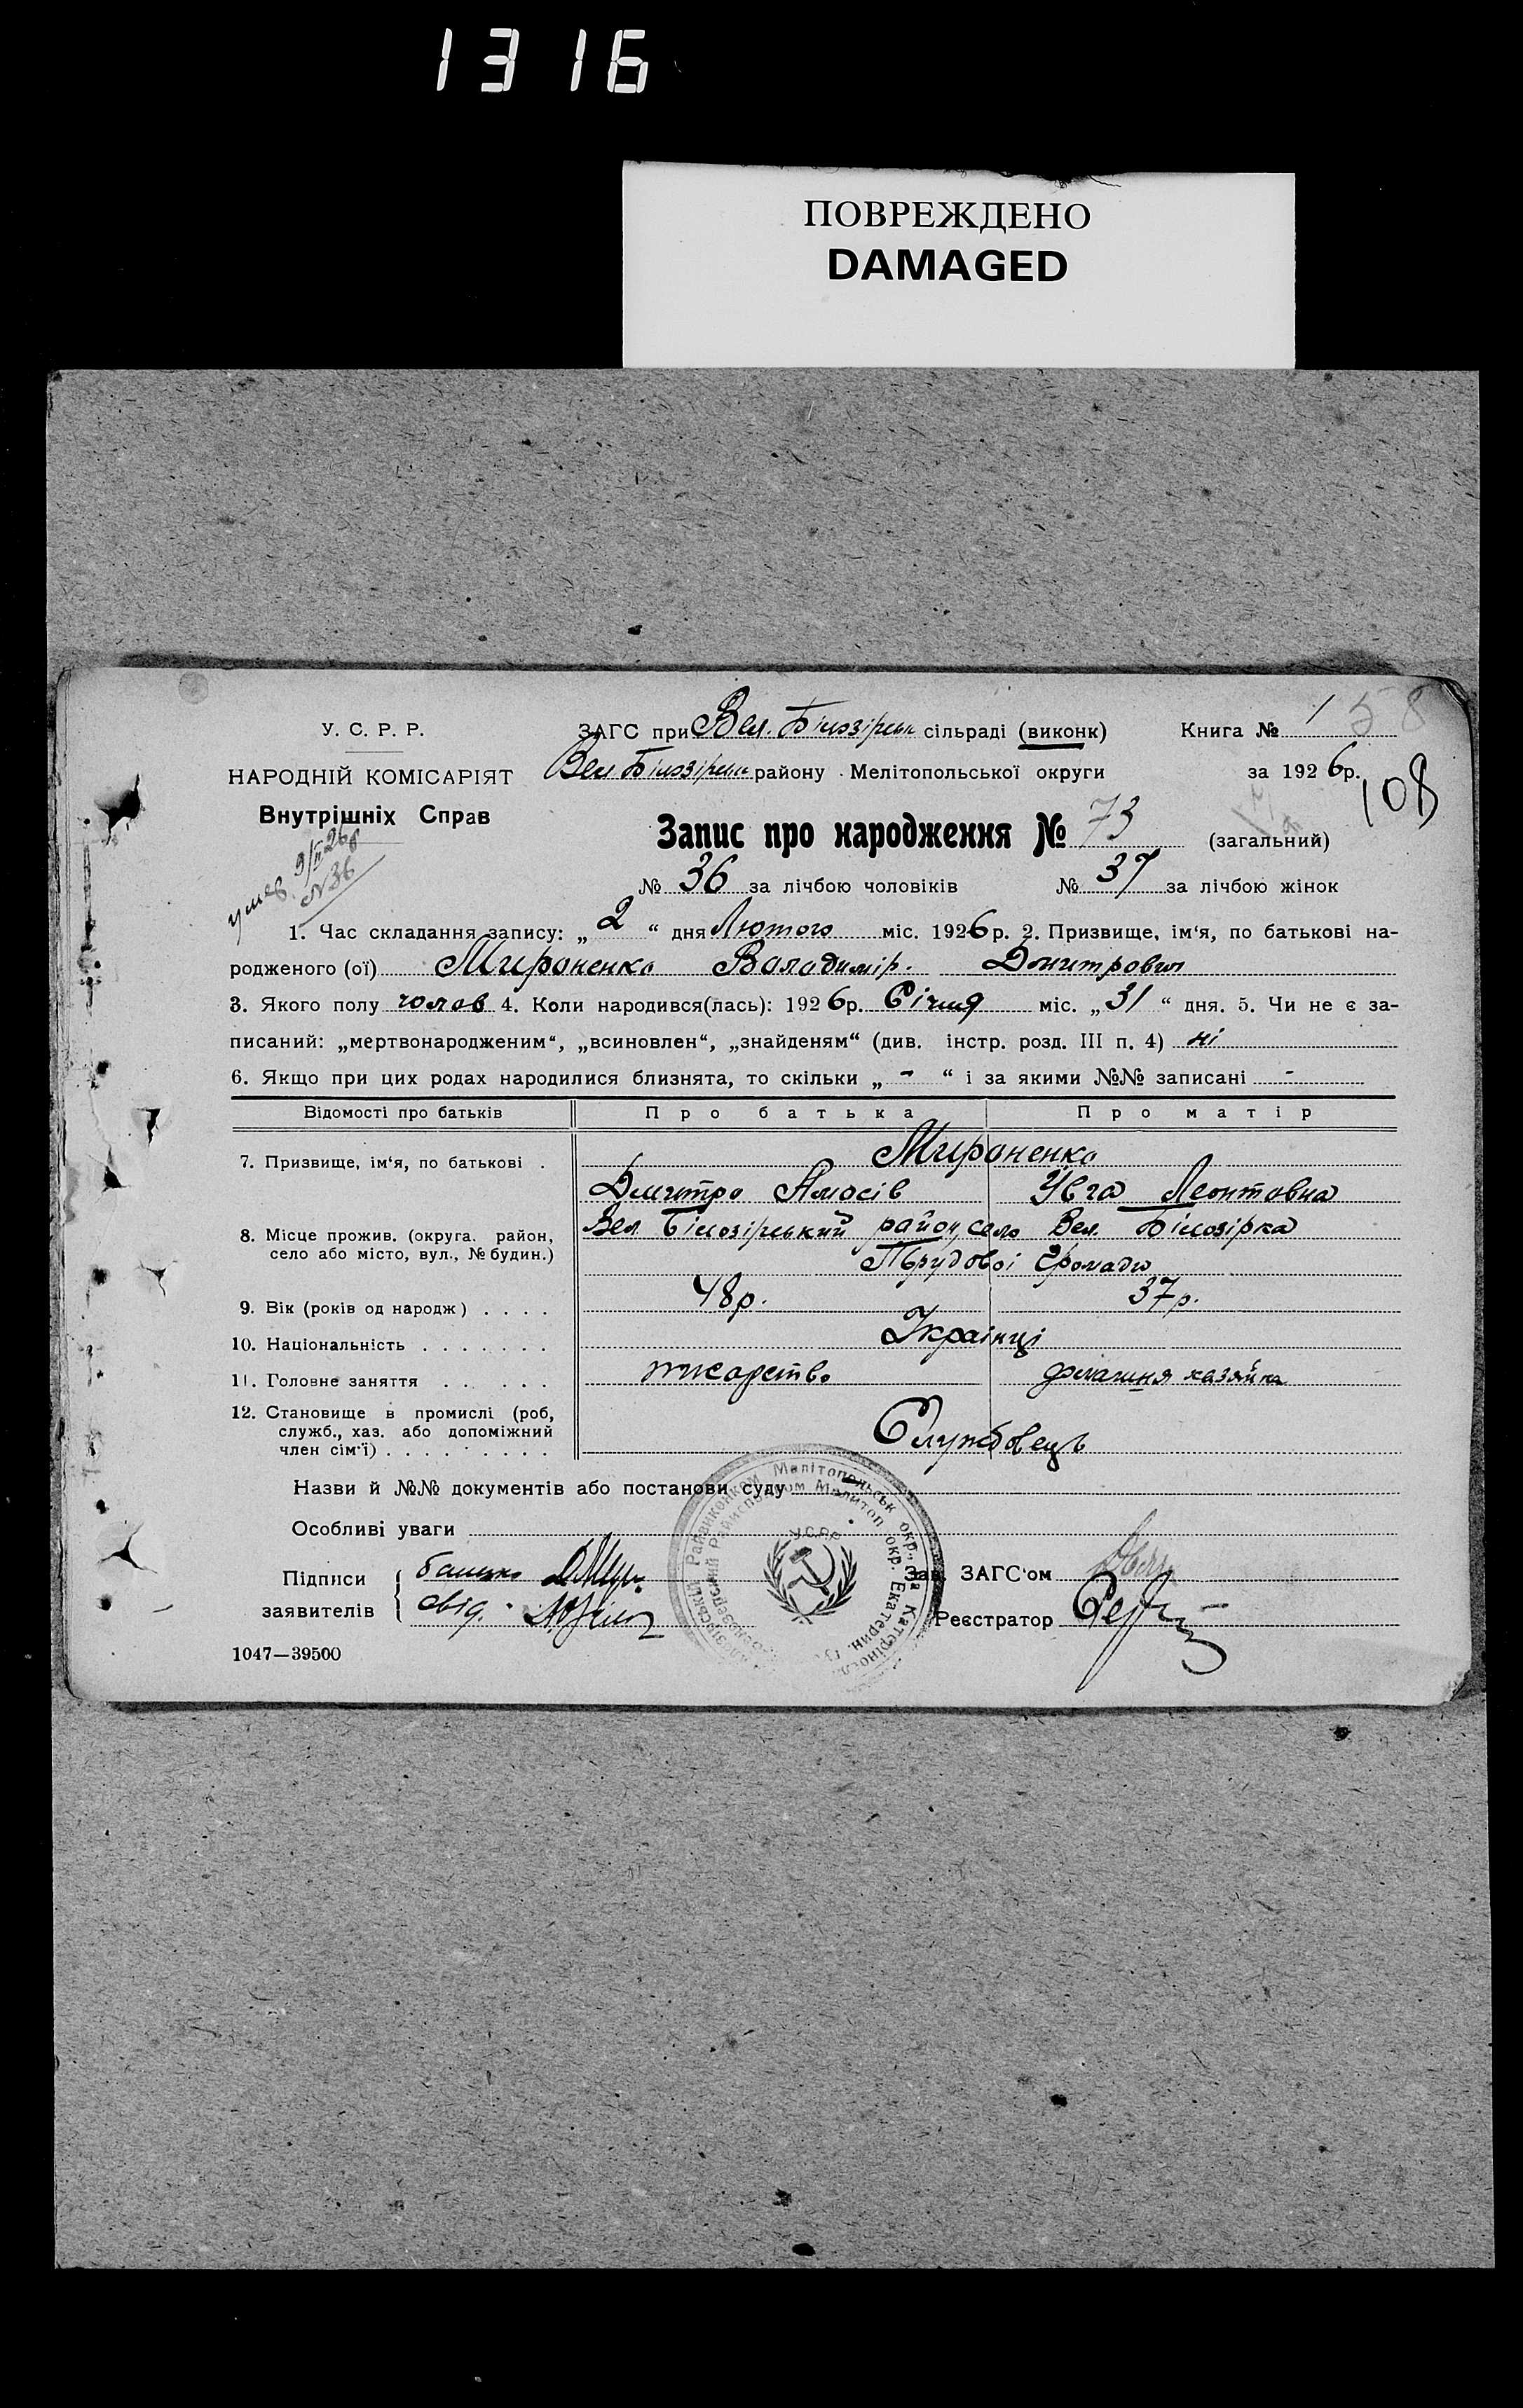 1316
ПОВРЕЖДЕНО
DAMAGED
У. С. Р. Р.
НАРОДНІЙ КОМІСАРІЯТ
Внутрішніх Справ
умер 9/II 26р
№36
ЗАГС при Вел. Білозірськ сільраді (виконк)
Книга № 1
58
Вел Білозірськ району Мелітопольської округи
за 1926р.
108
Запис про народження № 73 (загальний)
№ 36 за лічбою чоловіків № 37 за лічбою жінок
1. Час складання запису: „2“ дня Лютого міс. 1926р. 2. Призвище, ім‘я, по батькові на-
родженого (ої) Мироненко Володимір. Дмитрович
3. Якого полу чолов 4. Коли народився(лась): 1926р. Січня міс. „31“ дня. 5. Чи не є за-
писаний: „мертвонародженим“, „всиновлен“, „знайденям“ (див. інстр. розд. III п. 4) ні
6. Якщо при цих родах народилися близнята, то скільки „-“ і за якими №№ записані -
Відомості про батьків
Про батька
Про матір
7. Призвище, ім‘я, по батькові .
Мироненко
Дмитро Амосів
Увга Леонтовна
8. Місце прожив. (округа. район,
село або місто, вул., № будин.)
Вел. Білозірський район, село Вел. Білозірка
Трудової Громади
9. Вік (років од народж) . . . .
48р.
37р.
10. Національність . . . . . . .
Українці
11. Головне заняття . . . . .
писарство
домашня хазяйка
12. Становище в промислі (роб,
служб., хаз. або допоміжний
член сім‘ї) . . . . . . . . .
Службовець
Назви й №№ документів або постанови суду
Особливі уваги
Підписи
заявителів
батько
свід.
Зав. ЗАГС‘ом
Реєстратор
Мелітопольськ окр.
Райвиконком
У.С.Р.Р.
1047—39500